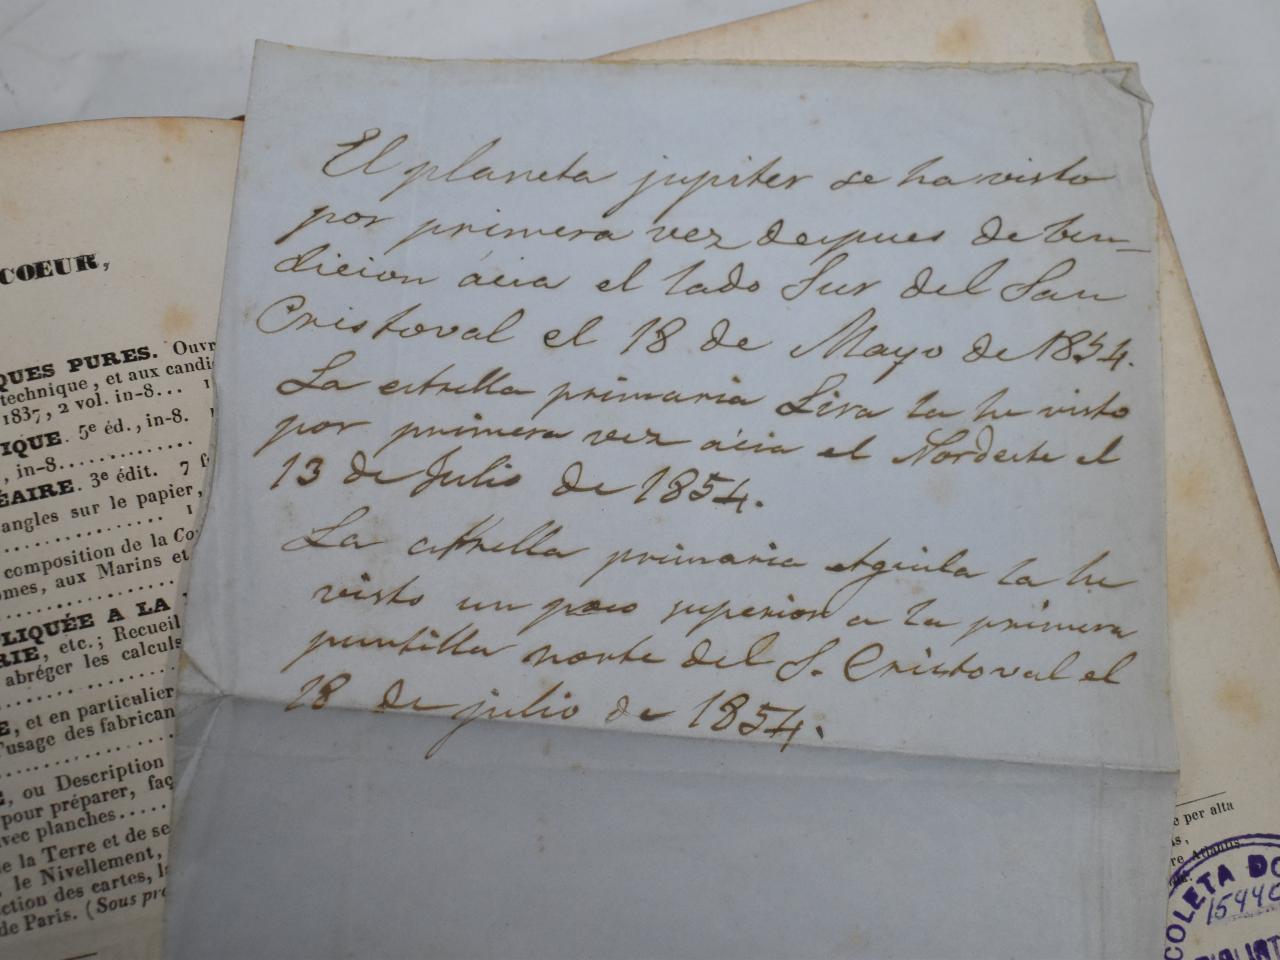 El planeta jupiter se ha visto
por primera vez despues de ben-
dicion ácia el lado Sur del San
Cristoval el 18 de Mayo de 1854.
La estrella primaria Lira la he visto
por primera vez ácia el Nordeste el
13 de Julio de 1854.
La estrella primaria Aguila la he
visto un poco superior a la primera
puntilla norte del S. Cristoval el
18 de julio de 1854.
COEUR,
QUES PURES. Ouvr
technique, et aux candi
1837, 2 vol. in-8... 1
IQUE. 5e éd., in-8.
, in-8
ÉAIRE. 3e édit. 7 f
angles sur le papier,
1
composition de la Co
omes, aux Marins et
PLIQUÉE A LA
RIE, etc.; Recueil
abréger les calculs
E, et en particulier
l'usage des fabrican
, ou Description
pour préparer, faç
avec planches
e la Terre et de se
, le Nivellement,
ction des cartes, l
de Paris. (Sous pre
e per alta
is,
re Atlantis
COLETA DO
15440